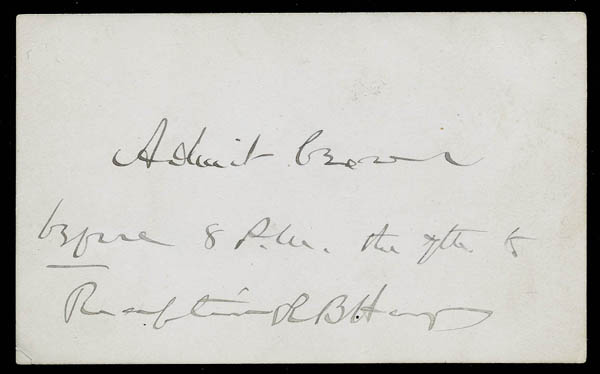 Admit bearer
before 8 P.M. the 7th to
Reception R B Hayes